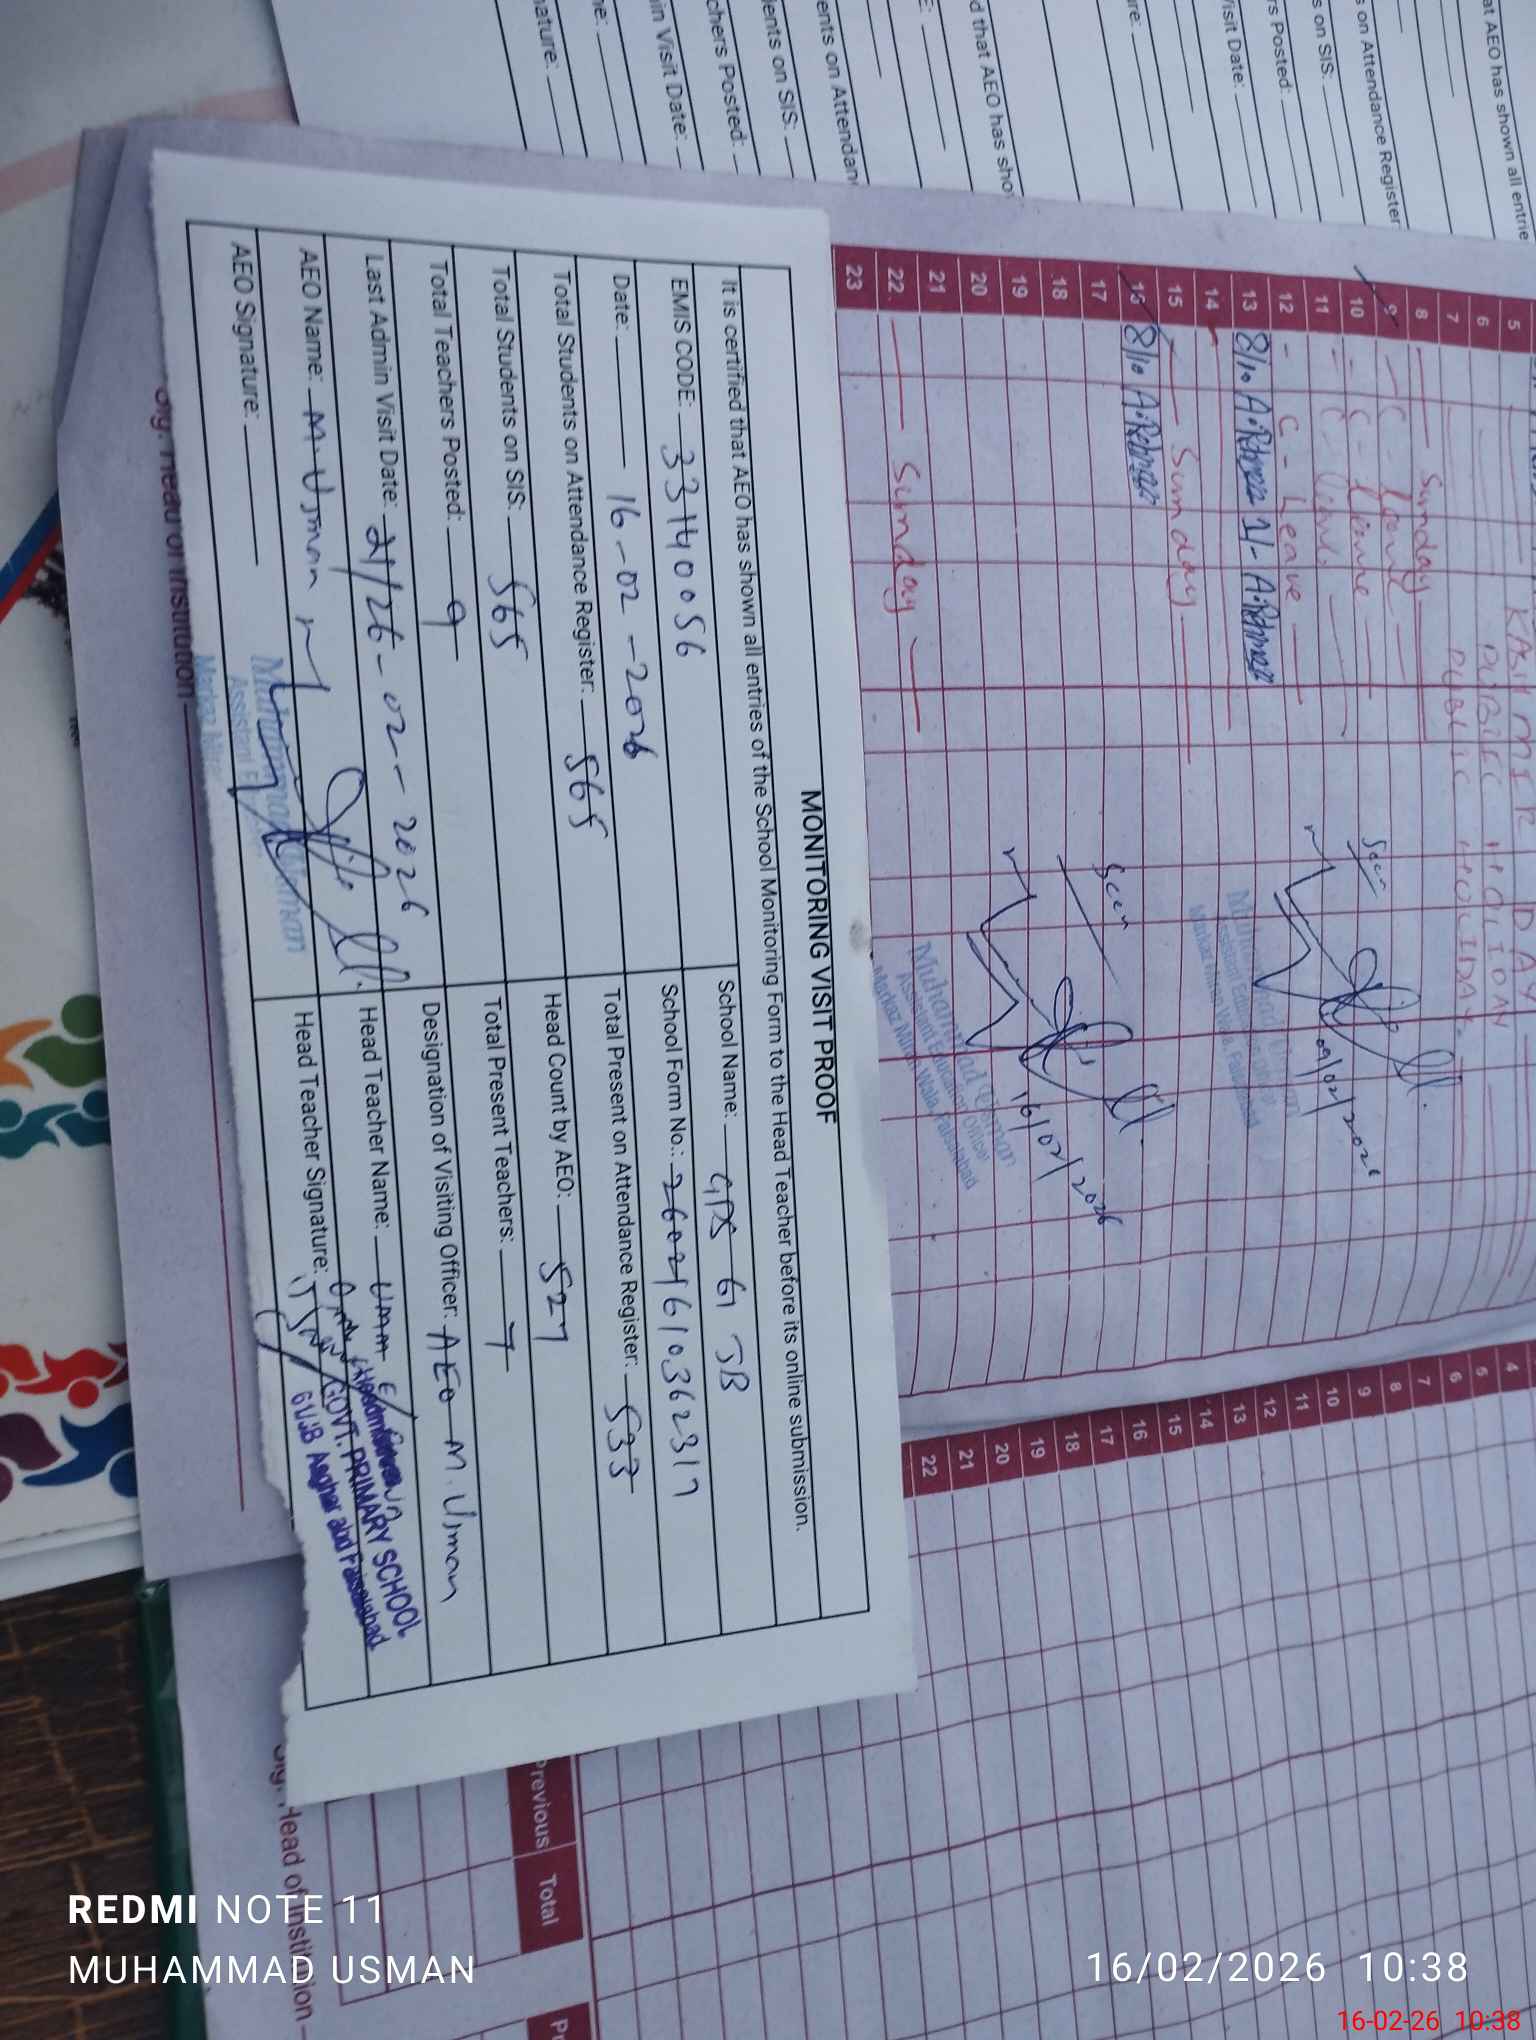 MONITORING VISIT PROOF
It is certified that AEO has shown all entries of the School Monitoring Form to the Head Teacher before its online submission.
EMIS CODE: 33140056
School Name: GPS 61 JB
Date: 16-02-2026
School Form No.: 26021610362317
Total Students on Attendance Register: 565
Total Present on Attendance Register: 533
Total Students on SIS: 565
Head Count by AEO: 527
Total Teachers Posted: 9
Total Present Teachers: 7
Last Admin Visit Date: 21/26-02-2026
Designation of Visiting Officer: AEO M. Usman
AEO Name: M. Usman
Head Teacher Name: Umm
AEO Signature:
Head Teacher Signature:
GOVT. PRIMARY SCHOOL
61JB
Muhammad Usman
Assistant E
Markaz
5
6 PUBLIC HOLIDAY
7 PUBLIC HOLIDAY
8 Sunday
9 C- Leave
10 C- Leave
11 C- Leave
12 - C - Leave
13 8/10 A.Rehman 1/- A.Rehman
14
15 Sunday
16 8/10 A.Rehman
17
18
19
20
21
22 Sunday
23
Seen
09/02/2026
Seen
16/02/2026
Muhammad Usman
Assistant Education Officer
Markaz Wala, Faisalabad
4
5
6
7
8
9
10
11
12
13
14
15
16
17
18
19
20
21
22
Previous
Total
Sig. Head of Institution
Sig. Head of Institution
at AEO has shown all entrie
s on Attendance Register
s on SIS:
rs Posted:
isit Date:
re:
d that AEO has sho
ents on Attendan
ents on SIS:
chers Posted:
in Visit Date:
ne:
nature:
REDMI NOTE 11
MUHAMMAD USMAN
16/02/2026 10:38
16-02-26 10:38